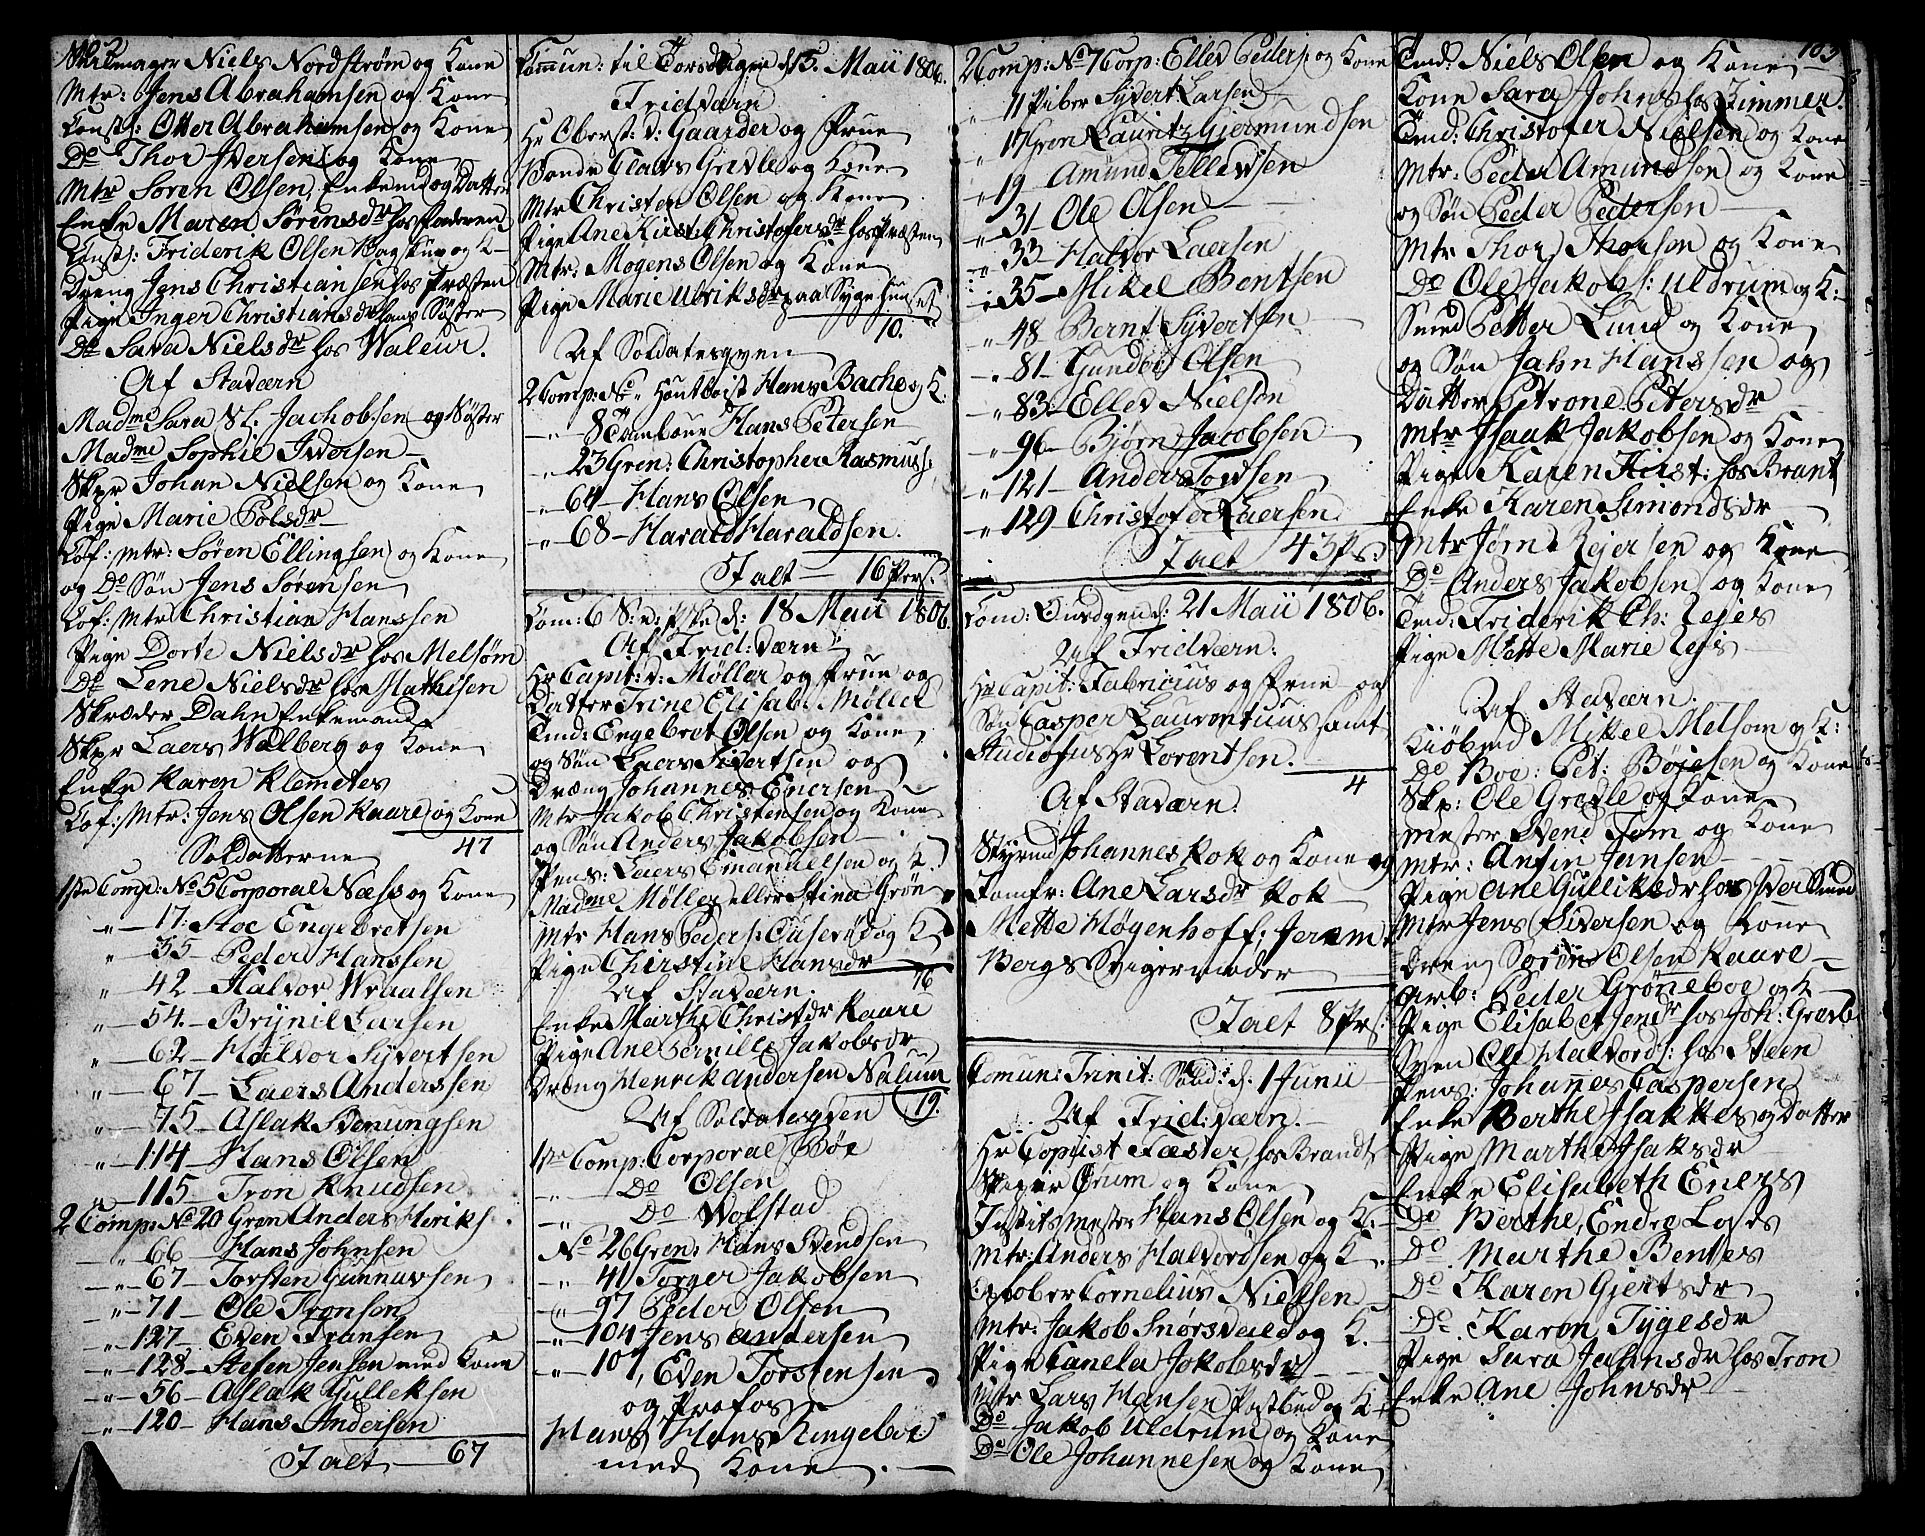 Niels Nordstrøm og Kone
Mtr: Jens Abrahamsen og Kone
Konst: Otter Abrahamsen og Kone
Do Thor Iversen og Kone
Mtr Søren Olsen Enkemd og Datter
Enke Maren Sørensdr hos Faderen
Konst: Friderik Olsen og K
Dreng Jens Christiansen hos Præsten
Pige Inger Christiansdr hans Søster
Do Sara Nielsdr hos Waleur.
Af Staværn
Madme Sara Sl. Jachobsen og Søster
Madme Sophie Iversen
Skpr Johan Nielsen og Kone
Pige Marie Polsdr
Lof: Mtr: Søren Ellingsen og Kone
og Do Søn Jens Sørensen
Lof: Mtr Christian Hanssen
Pige Dorte Nielsdr hos Melsøm
Do Lene Nielsdr hos Mathisen
Skræder Dahn Enkemand
Skpr Laers Walberg og Kone
Enke Karen Klemetes
Lof: Mtr: Jens Olsen Kaare og Kone
47
Soldatterne
1ste Comp: No 5 Corporal Næss og Kone
" 17. Engebretsen
" 35 Peder Hanssen
" 42 Halvor Wraalsen
" 54. Brynil Larsen
" 62 Halvor Syvertsen
" 67 Laers Anderssen
" 75 Aslak
" 114 Hans Olsen
" 115 Tron Knudsen
2 Comp: No 20 Gren Anders Henriks.
" 66 Hans Johnsen
" 67 Torsten Gunnarsen
" 71 Ole Tronsen
" 127 Even Fransen
" 128 Stefen Jensen med Kone
" 56 Aslak Gulleksen
" 120 Hans Andersen
Ialt 67
Commun: til Torsdagen d 15. Maii 1806.
Fridværn
Hr Oberst: v: Gaarder og Frue
Claus Grevle og Kone
Mtr Christen Olsen og Kone
Pige Ane Kirst: Christofersdr hos Præsten
Mtr: Mogens Olsen og Kone
Pige Marie Ulriksdr paa Sygehuuset
10.
Af Soldatesqven
2 Comp: No " Houtboist Hans Bache og K.
" 8 Tambour Hans Petersen
" 23 Gren: Christopher Rasmuss:
" 64 Hans Olsen
" 68 Harald Haraldsen.
Ialt 16 Pers:
Com: 6 S: e: Pske d: 18 Maii 1806.
Af Frid:værn
Hr Capit: v: Møller og Frue og
Datter Trine Elisab. Møller
Tmd: Engebret Olsen og Kone
og Søn Laers Sivertsen og
Dræng Johannes Enersen
Mtr Jakob Christensen og Kone
og Søn Anders Jakobsen
Pens: Laers Emanuelsen og K.
Madme Møller eller Stina Grøn
Mtr Hans Peders: og K
Pige Chirstine Hansdr
16
Af Stavern.
Enke Marthe Christdr Kaare
Pige Ane Pernille Jakobsdr
Dræng Henrik Andersen Nalum
19.
Af Soldatesqven
1ste Comp: Corporal Bøe
" Do Olsen
" Do Wolstad
No 26 Gren: Hans Svendsen
" 41 Torger Jakobsen
" 97 Peder Olsen
" 104 Jens Andersen
" 107, Even Torstensen
og Profos
Hans Hans Ringeboe
med Kone.
2 Comp: No 7 Corp: Ellev Peders: og Kone
" 11 Piber Syvert Larsen
" 17 Gren Lauritz Gjermundsen
" 19 Amund Tellevsen
" 31 Ole Olsen
" 33 Halvor Laersen
" 35 Mikel Bentsen
" 48 Bernt Syvertsen
" 81 Gunder Olsen
" 83 Ellev Nielsen
" 96 Bjørn Jacobsen
" 121 Anders
" 129 Christofer Laersen
Ialt 43 Ps:
Com: Onsdgen d: 21 Maii 1806.
Af Fridværn:
Hr Capit: Fabricius og Frue og
Søn Casper Laurentius samt
Studiosus Hr Lorentsen.
4
Af Staværn.
Styrmd Johannes Kok og Kone og
Jomfr: Ane Larsdr Kok
Mette Møgenhoff, Jerem
Bergs Svigermoder
Ialt 8 Prs:
Comun: Trinit: Sønd: d. 1 Junii
Af Frid:værn.
Hr Copiist Fæster hos Brandt
Ørum og Kone
Mester Hans Olsen og K:
Mtr: Anders Halvorsen og K
Cornelius Nielsen
Mtr: Jakob Snørsvaed og K.
Pige Canela Jakobsdr
Mtr Lars Hansen Postbud og K
Do Jakob Uldrum og Kone
Do Ole Johannesen og Kone
103
Tmd: Niels Olsen og Kone
Kone Sara Johns hos Zimmer.
Tmd: Christofer Nielsen og Kone
Mtr: Peder Amundsen og Kone
og Søn Peder Pedersen
Mtr Thor Thorsen og Kone
Do Ole Jakobs: Uldrum og K:
Smed Petter Lund og Kone
og Søn Jahn Hanssen og
Datter Petrone Petersdr
Mtr Isaak Jakobsen og Kone
Pige Karen Kirst: hos Brant
Enke Karen Simonsdr
Mtr Jørn Rejersen og Kone
Do Anders Jakobsen og Kone
Tmd: Friderik Ch: Lejes
Pige Mette Marie Lejs
Af Staværn.
Kiøbmd Mikel Melsom og K:
Do Boe: Pet: Bøjesen og Kone
Skp: Ole Grevle og Kone
Mester Svend Tom og Kone
Mtr: Anfin Jansen
Pige Ane Gulliksdr hos Iver Smed
Mtr Jens Siversen og Kone
Dreng Søren Olsen Kaare
Arb: Peder Grøneboe og K
Pige Elisabet Jensdr hos Joh: Grevle
Sven Ole Halvors: hos Steen
Pens: Johannes Caspersen
Enke Berthe Isakkes og Datter
Pige Marthe Isaksdr
Enke Elisabeth Eners
Do Berthe Endre Loses
Do Marthe Bentes
Do Karen Gjertsdr
Do Karen Tygesdr
Pige Sara Jahnsdr hos Tron
Enke Ane Johnsdr